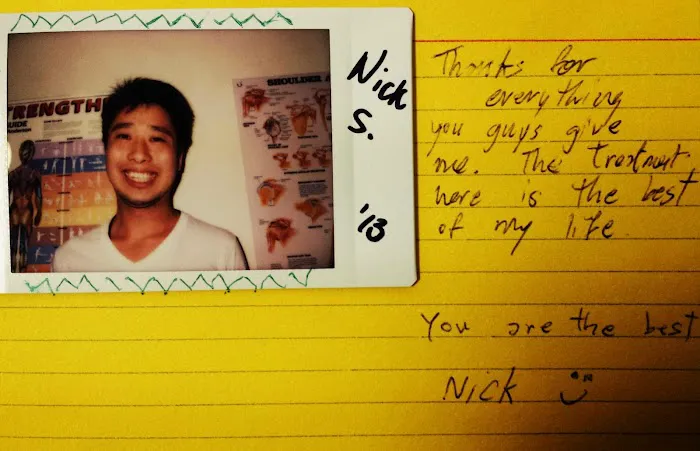 TRENGTH
UIDE
SHOULDER
Nick
S.
'13
Thanks for
everything
you guys give
me. The treatment
here is the best
of my life
You are the best
Nick